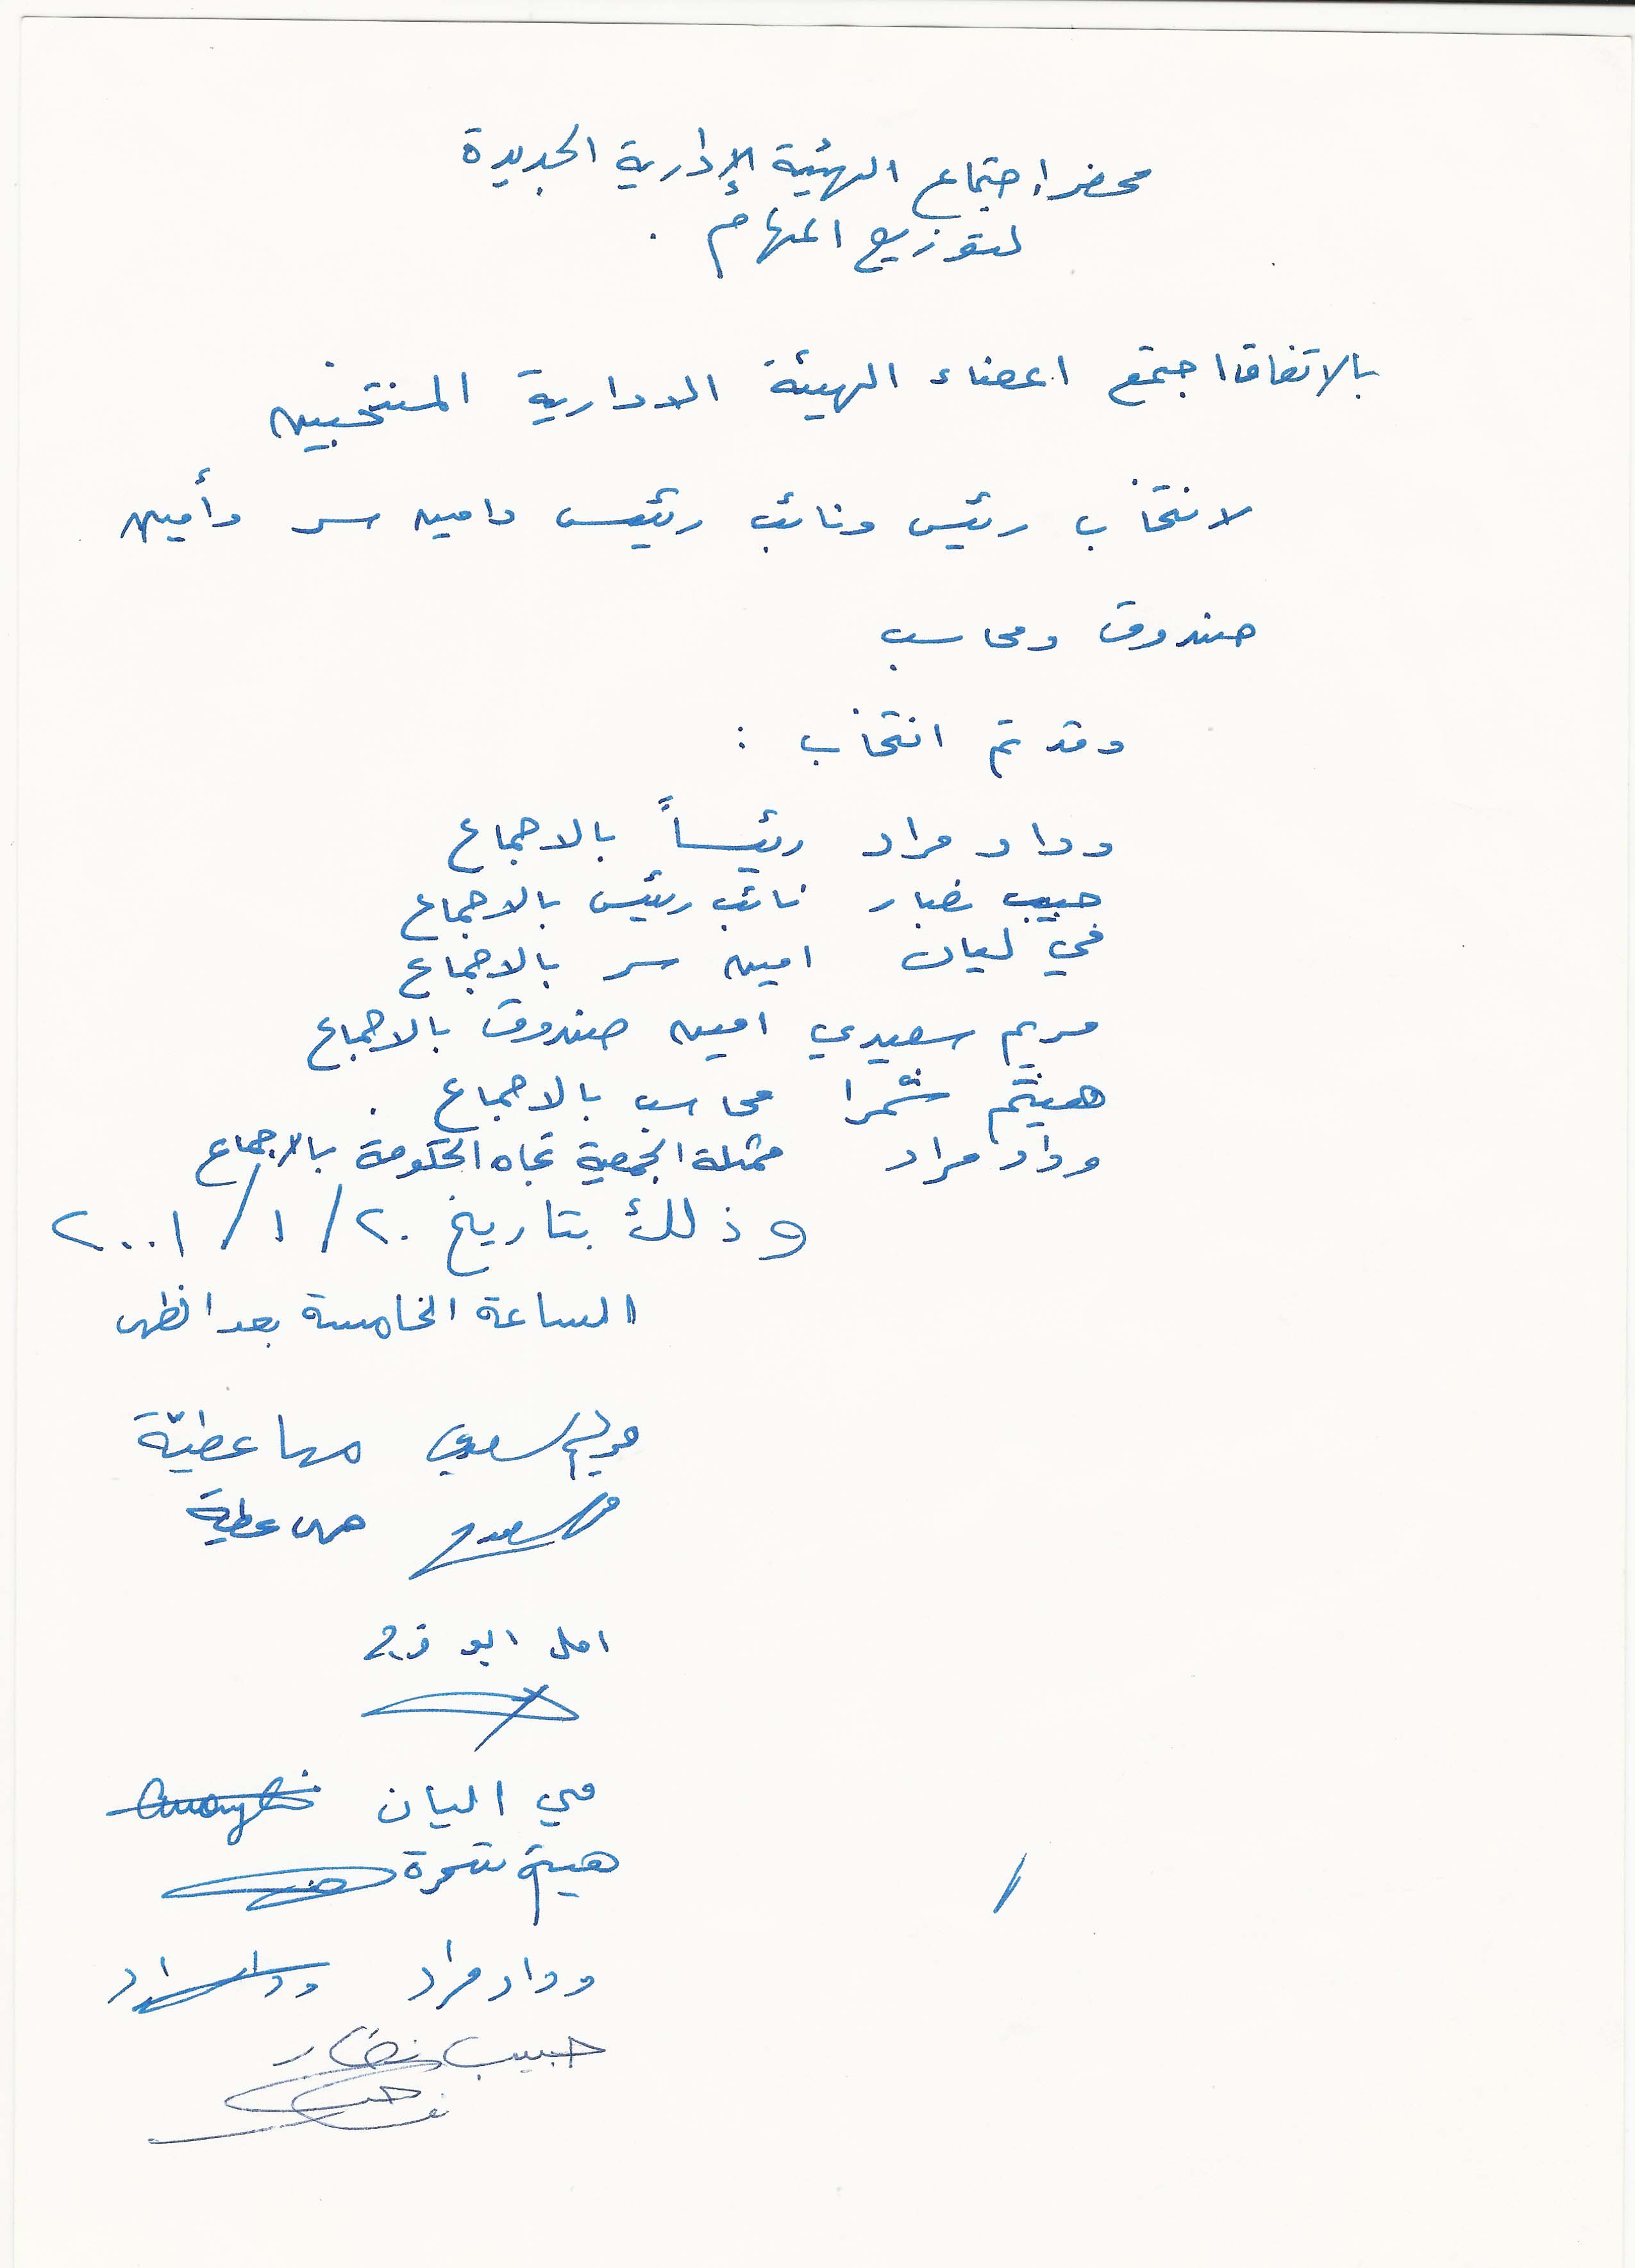 محضر اجتماع الهيئة الإدارية الجديدة
لتوزيع المهام .
بالاتفاق اجتمع اعضاء الهيئة الادارية المنتخبين
لانتخاب رئيس ونائب رئيس وامين سر وأمين
صندوق ومحاسب
وقد تم انتخاب :
وداد مراد رئيساً بالاجماع
حبيب نضار نائب رئيس بالاجماع
مي ليان امين سر بالاجماع
مريم سعيدي امين صندوق بالاجماع
هيثم شمرا محاسب بالاجماع .
وداد مراد ممثلة الجمعية تجاه الحكومة بالاجماع
وذلك بتاريخ ٢٠/١/٢٠٠١
الساعة الخامسة بعد الظهر
مريم سعيدي مها عطيّة
مها عطية
امل ابو
مي اليان
هيثم شمرة
وداد مراد وداد مراد
حبيب نضار